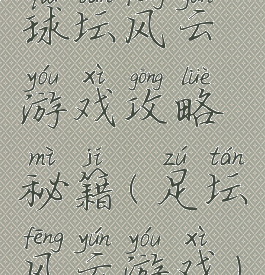 球坛风云
yóu xì gōng lüè
游戏攻略
mì jí zú tán
秘籍(足坛
fēng yún yóu xì
风云游戏)